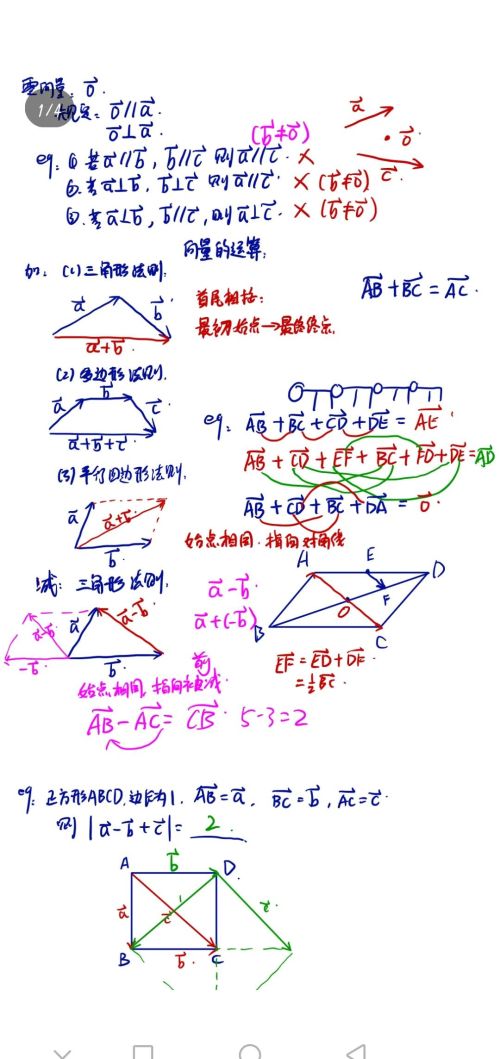 零向量: 0⃗
1/4
规定: 0⃗ // a⃗
0⃗ ⊥ a⃗
(b⃗≠0⃗)
a⃗
0⃗
c⃗
eg: ① 若a⃗//b⃗, b⃗//c⃗ 则a⃗//c⃗. ×
②. 若a⃗⊥b⃗, b⃗⊥c⃗ 则a⃗//c⃗. × (b⃗≠0⃗)
③. 若a⃗⊥b⃗, b⃗//c⃗, 则a⃗⊥c⃗. × (b⃗≠0⃗)
向量的运算:
加: (1) 三角形法则.
a⃗ b⃗
a⃗+b⃗
首尾相接:
最初始点→最终终点.
AB⃗+BC⃗=AC⃗.
(2) 多边形法则.
a⃗ b⃗ c⃗
a⃗+b⃗+c⃗
eg: AB⃗+BC⃗+CD⃗+DE⃗= AE⃗.
AB⃗+CD⃗+EF⃗+BC⃗+FD⃗+DE⃗=AD⃗
AB⃗+CD⃗+BC⃗+DA⃗=0⃗.
(3) 平行四边形法则.
a⃗ a⃗+b⃗ b⃗
始点相同. 指向对角线
减: 三角形法则.
a⃗-b⃗ a⃗ a⃗-b⃗
-b⃗ b⃗
a⃗-b⃗
a⃗+(-b⃗)
A E D
O F
B C
EF⃗=ED⃗+DF⃗
=½BC⃗.
前
始点相同, 指向被减
AB⃗-AC⃗=CB⃗. 5-3=2
eg: 正方形ABCD, 边长为1, AB⃗=a⃗, BC⃗=b⃗, AC⃗=c⃗.
则 |a⃗-b⃗+c⃗|= 2
A b⃗ D.
a⃗ c⃗ c⃗
B b⃗ C